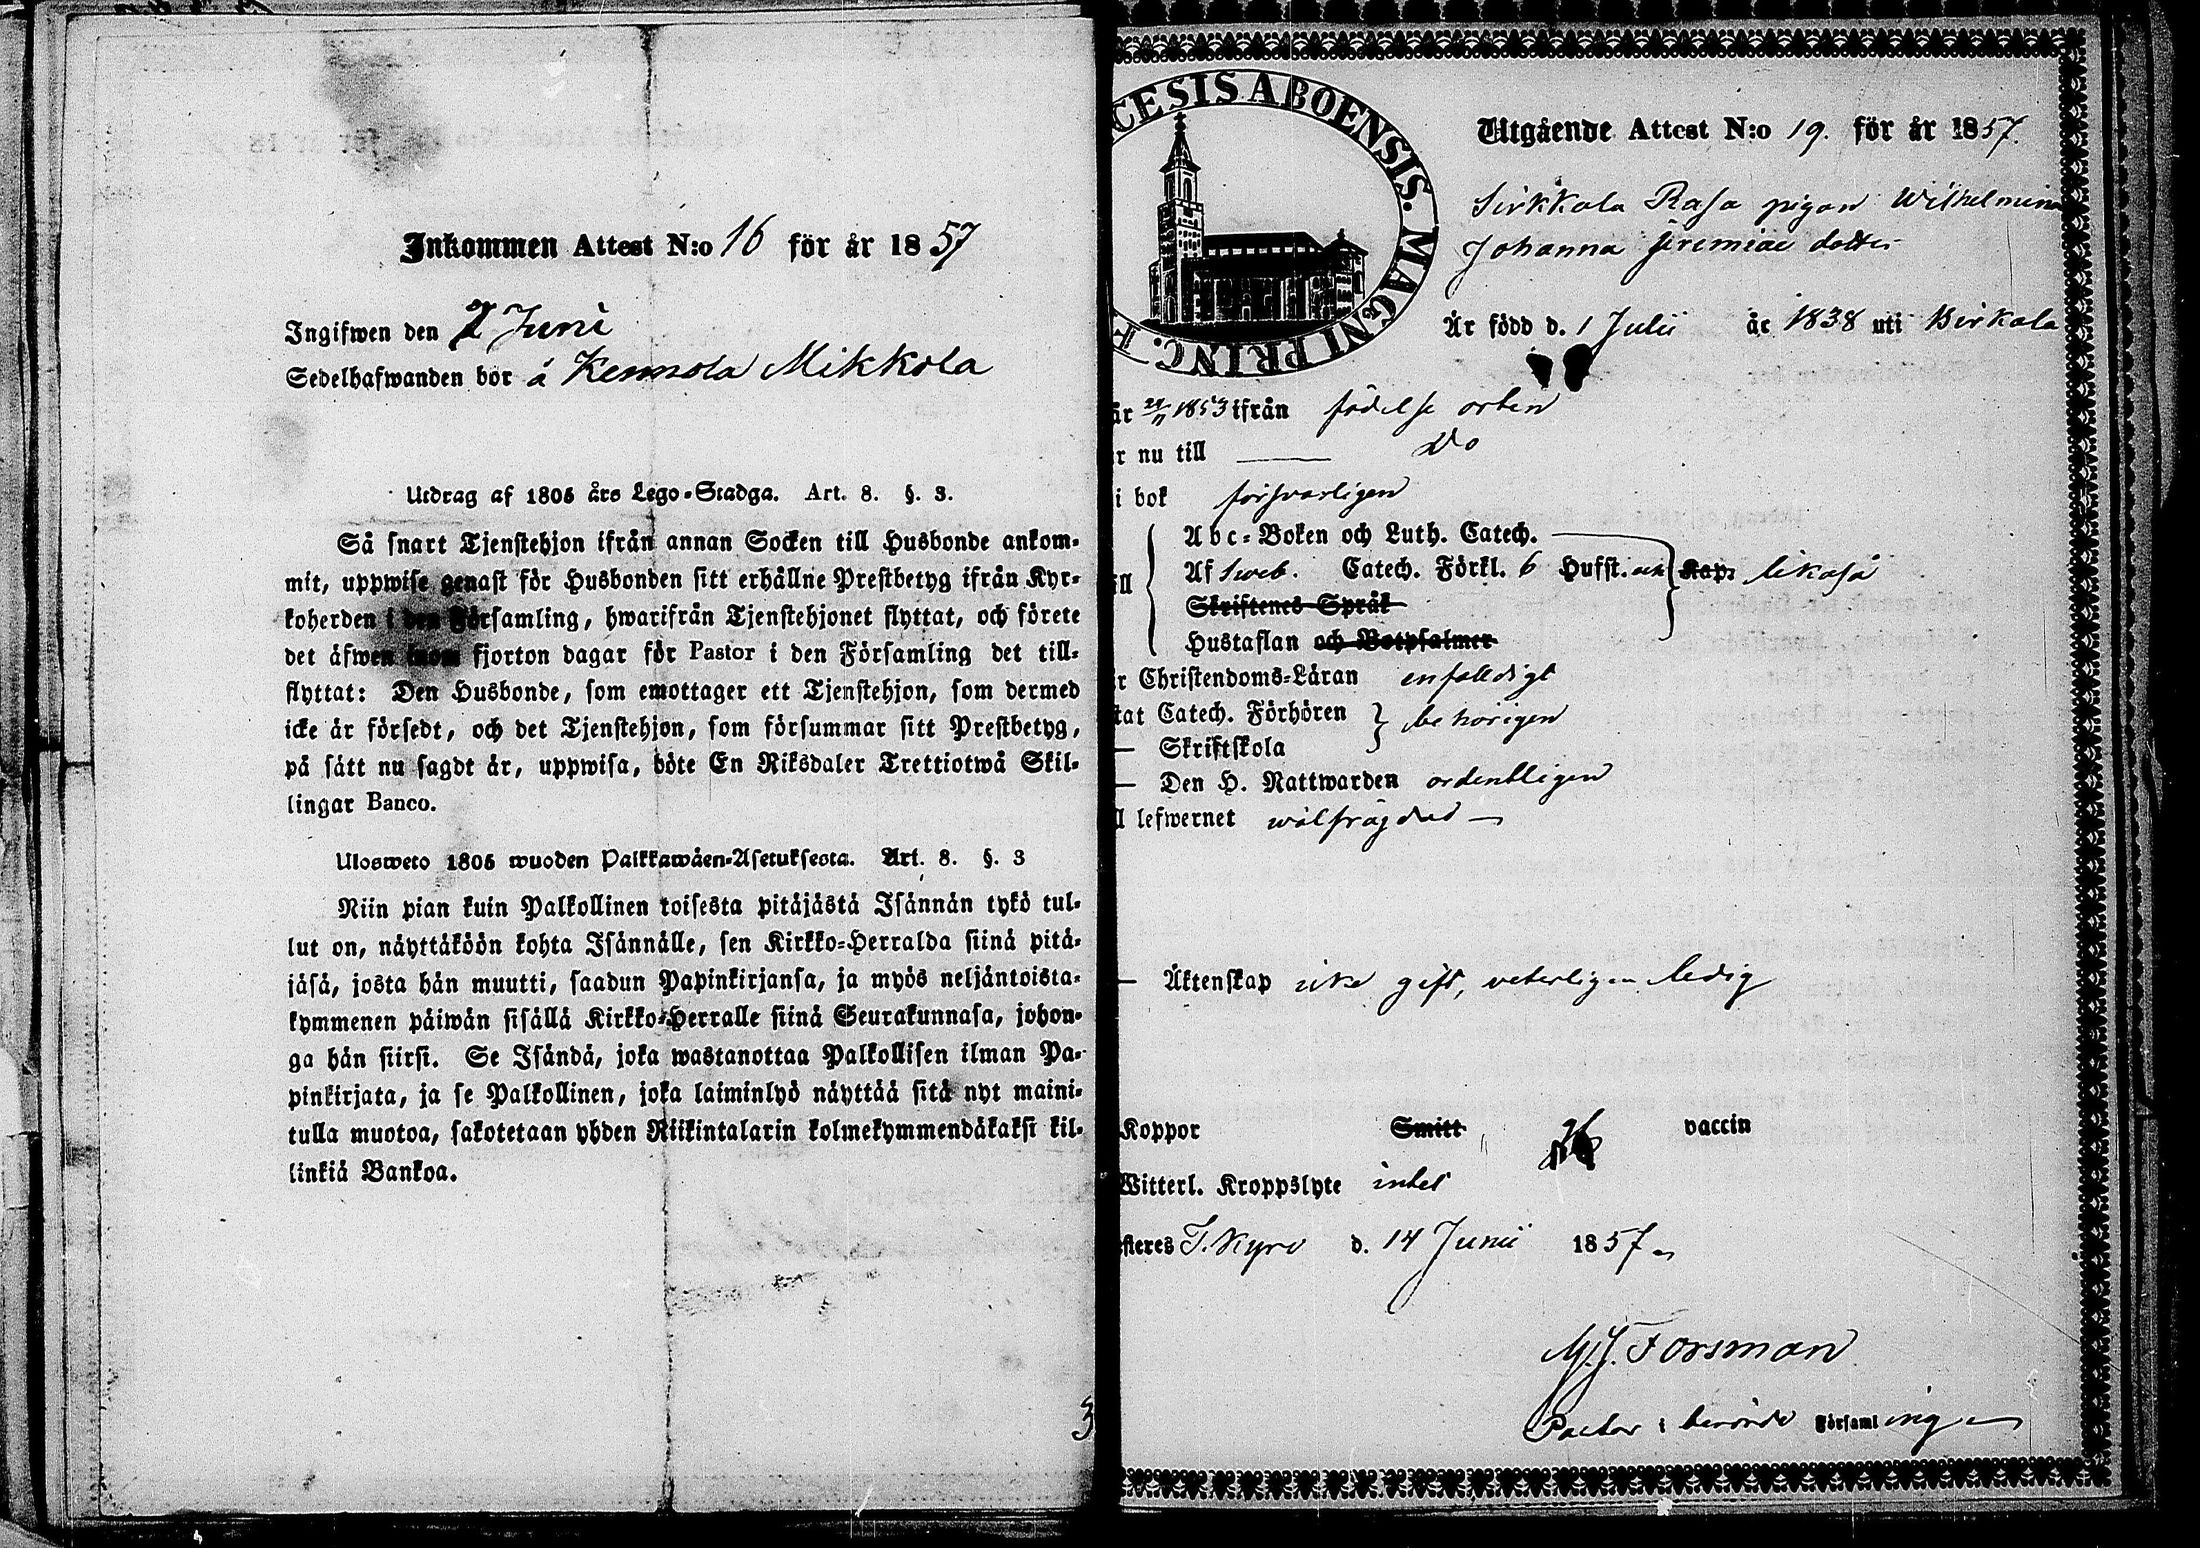 Inkommen Attest N:o 16 för år 1857
Ingifwen den 2 Juni
Sedelhafwanden bor å Kennola Mikkola
Utdrag af 1805 års Lego-Stadga. Art. 8. §. 3.
Så snart Tjenstehjon ifrån annan Socken till Husbonde ankom-
mit, uppwise genast för Husbonden sitt erhållne Prestbetyg ifrån Kyr-
koherden i den Församling, hwarifrån Tjenstehjonet flyttat, och förete
det äfwen inom fjorton dagar för Pastor i den Församling det till-
flyttat: Den Husbonde, som emottager ett Tjenstehjon, som dermed
icke är försedt, och det Tjenstehjon, som försummar sitt Prestbetyg,
på sätt nu sagdt är, uppwisa, böte En Riksdaler Trettiotwå Skil-
lingar Banco.
Ulosweto 1805 wuoden Palkkawäen-Asetuksesta. Art. 8. §. 3
Niin pian kuin Palkollinen toisesta pitäjästä Isännän tykö tul-
lut on, näyttäköön kohta Isännälle, sen Kirkko-Herralda siinä pitä-
jäsä, josta hän muutti, saadun Papinkirjansa, ja myös neljäntoista-
kymmenen päiwän sisällä Kirkko-Herralle siinä Seurakunnasa, johon-
ga hän siirsi. Se Isändä, joka wastanottaa Palkollisen ilman Pa-
pinkirjata, ja se Palkollinen, joka laiminlyö näyttää sitä nyt maini-
tulla muotoa, sakotetaan yhden Riikintalarin kolmekymmendäkaksi kil-
linkiä Bankoa.
3
CESIS ABOENSIS. MAGNI PRINC. F
Utgående Attest N:o 19. för år 1857.
Sirkkala Rasa pigan Wilhelmina
Johanna Jeremiae dotter
Är född d. 1 Julii år 1838 uti Birkala
är 29/11 1853 ifrån födelse orten
r nu till Do
i bok försvarligen
Abc-Boken och Luth. Catech.
ll Af Sweb. Catech. Förkl. 6 Hufst. och Kap. likaså
Skriftenes Språk
Hustaflan och Botpsalmer
r Christendoms-Läran enfalldigt
tat Catech. Förhören behörigen
— Skriftskola
— Den H. Nattwarden ordentligen
l lefwernet wälfrägdad
— Äktenskap icke gift, veterligen ledig
Koppor Smitt vaccin
Witterl. Kroppslyte intet
steres T. Kyro d. 14 Junii 1857
M.J. Forsman
Pastor i berörde Församlingen